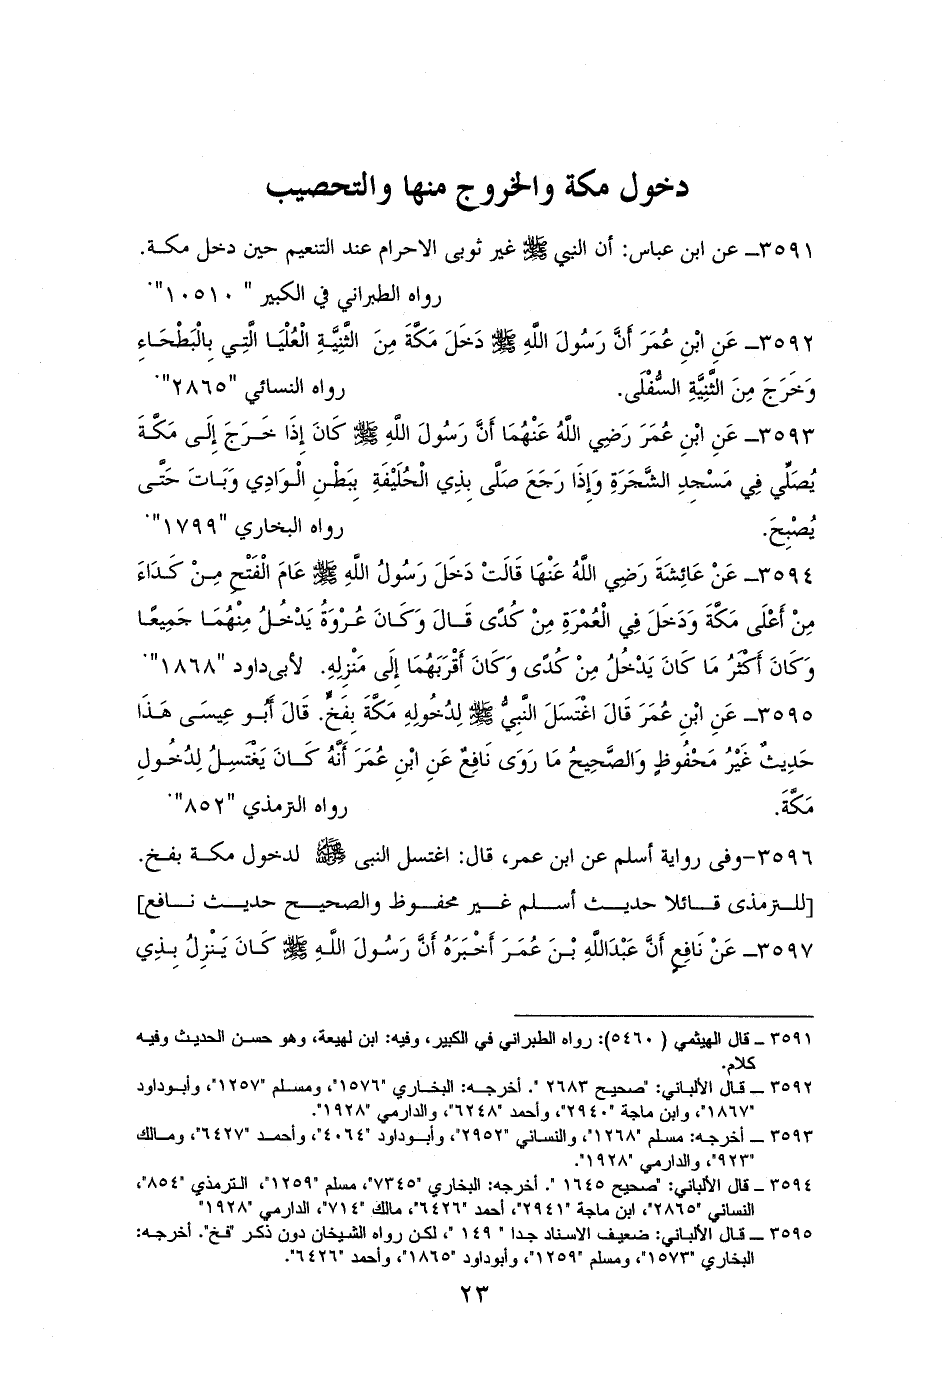 دخول مكة والخروج منها والتحصيب
٣٥٩١ـ عن ابن عباس: أن النبي ﷺ غير ثوبى الاحرام عند التنعيم حين دخل مكة.
رواه الطبراني في الكبير " ١٠٥١٠".
٣٥٩٢ـ عَنِ ابْنِ عُمَرَ أَنَّ رَسُولَ اللَّهِ ﷺ دَخَلَ مَكَّةَ مِنَ الثَّنِيَّةِ الْعُلْيَا الَّتِي بِالْبَطْحَاءِ
وَخَرَجَ مِنَ الثَّنِيَّةِ السُّفْلَى. رواه النسائي "٢٨٦٥".
٣٥٩٣ـ عَنِ ابْنِ عُمَرَ رَضِي اللَّهُ عَنْهُمَا أَنَّ رَسُولَ اللَّهِ ﷺ كَانَ إِذَا خَرَجَ إِلَى مَكَّةَ
يُصَلِّي فِي مَسْجِدِ الشَّجَرَةِ وَإِذَا رَجَعَ صَلَّى بِذِي الْحُلَيْفَةِ بِبَطْنِ الْوَادِي وَبَاتَ حَتَّى
يُصْبِحَ. رواه البخاري "١٧٩٩".
٣٥٩٤ـ عَنْ عَائِشَةَ رَضِي اللَّهُ عَنْهَا قَالَتْ دَخَلَ رَسُولُ اللَّهِ ﷺ عَامَ الْفَتْحِ مِنْ كَدَاءَ
مِنْ أَعْلَى مَكَّةَ وَدَخَلَ فِي الْعُمْرَةِ مِنْ كُدًى قَالَ وَكَانَ عُرْوَةُ يَدْخُلُ مِنْهُمَا جَمِيعًا
وَكَانَ أَكْثَرُ مَا كَانَ يَدْخُلُ مِنْ كُدًى وَكَانَ أَقْرَبَهُمَا إِلَى مَنْزِلِهِ. لأبى داود "١٨٦٨".
٣٥٩٥ـ عَنِ ابْنِ عُمَرَ قَالَ اغْتَسَلَ النَّبِيُّ ﷺ لِدُخُولِهِ مَكَّةَ بِفَخٍّ. قَالَ أَبُو عِيسَى هَذَا
حَدِيثٌ غَيْرُ مَحْفُوظٍ وَالصَّحِيحُ مَا رَوَى نَافِعٌ عَنِ ابْنِ عُمَرَ أَنَّهُ كَانَ يَغْتَسِلُ لِدُخُولِ
مَكَّةَ. رواه الترمذي "٨٥٢".
٣٥٩٦-وفى رواية أسلم عن ابن عمر، قال: اغتسل النبى ﷺ لدخول مكة بفخ.
[للترمذى قائلا حديث أسلم غير محفوظ والصحيح حديث نافع]
٣٥٩٧ـ عَنْ نَافِعٍ أَنَّ عَبْدَاللَّهِ بْنَ عُمَرَ أَخْبَرَهُ أَنَّ رَسُولَ اللَّهِ ﷺ كَانَ يَنْزِلُ بِذِي
٣٥٩١ ـ قال الهيثمي ( ٥٤٦٠): رواه الطبراني في الكبير، وفيه: ابن لهيعة، وهو حسن الحديث وفيه
كلام.
٣٥٩٢ ـ قال الألباني: "صحيح ٢٦٨٣ ". أخرجه: البخاري "١٥٧٦"، ومسلم "١٢٥٧"، وأبوداود
"١٨٦٧"، وابن ماجة "٢٩٤٠"، وأحمد "٦٢٤٨"، والدارمي "١٩٢٨".
٣٥٩٣ ـ أخرجه: مسلم "١٢٦٨"، والنسائي "٢٩٥٢"، وأبوداود "٤٠٦٤"، وأحمد "٦٤٢٧"، ومالك
"٩٢٣"، والدارمي "١٩٢٨".
٣٥٩٤ ـ قال الألباني: "صحيح ١٦٤٥ ". أخرجه: البخاري "٧٣٤٥"، مسلم "١٢٥٩"، الترمذي "٨٥٤"،
النسائي "٢٨٦٥"، ابن ماجة "٢٩٤١"، أحمد "٦٤٢٦"، مالك "٧١٤"، الدارمي "١٩٢٨"
٣٥٩٥ ـ قال الألباني: ضعيف الاسناد جدا " ١٤٩ "، لكن رواه الشيخان دون ذكر "فخ". أخرجه:
البخاري "١٥٧٣"، ومسلم "١٢٥٩"، وأبوداود "١٨٦٥"، وأحمد "٦٤٢٦".
٢٣